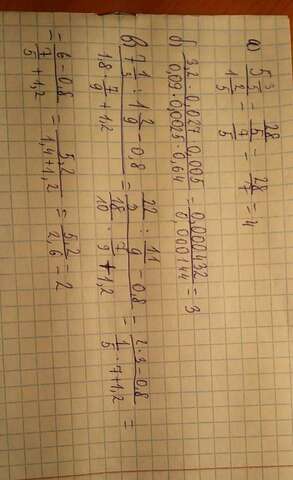 а) (5 3/5)/(1 2/5) = (28/5)/(7/5) = 28/7 = 4
б) (3,2 · 0,027 · 0,005)/(0,09 · 0,0025 · 0,64) = 0,000432/0,000144 = 3
в) (7 1/3 : 1 2/9 - 0,8)/(1,8 · 7/9 + 1,2) = (22/3 : 11/9 - 0,8)/(18/10 · 7/9 + 1,2) = (2·3 - 0,8)/(1/5 · 7 + 1,2) =
= (6 - 0,8)/(7/5 + 1,2) = 5,2/(1,4 + 1,2) = 5,2/2,6 = 2